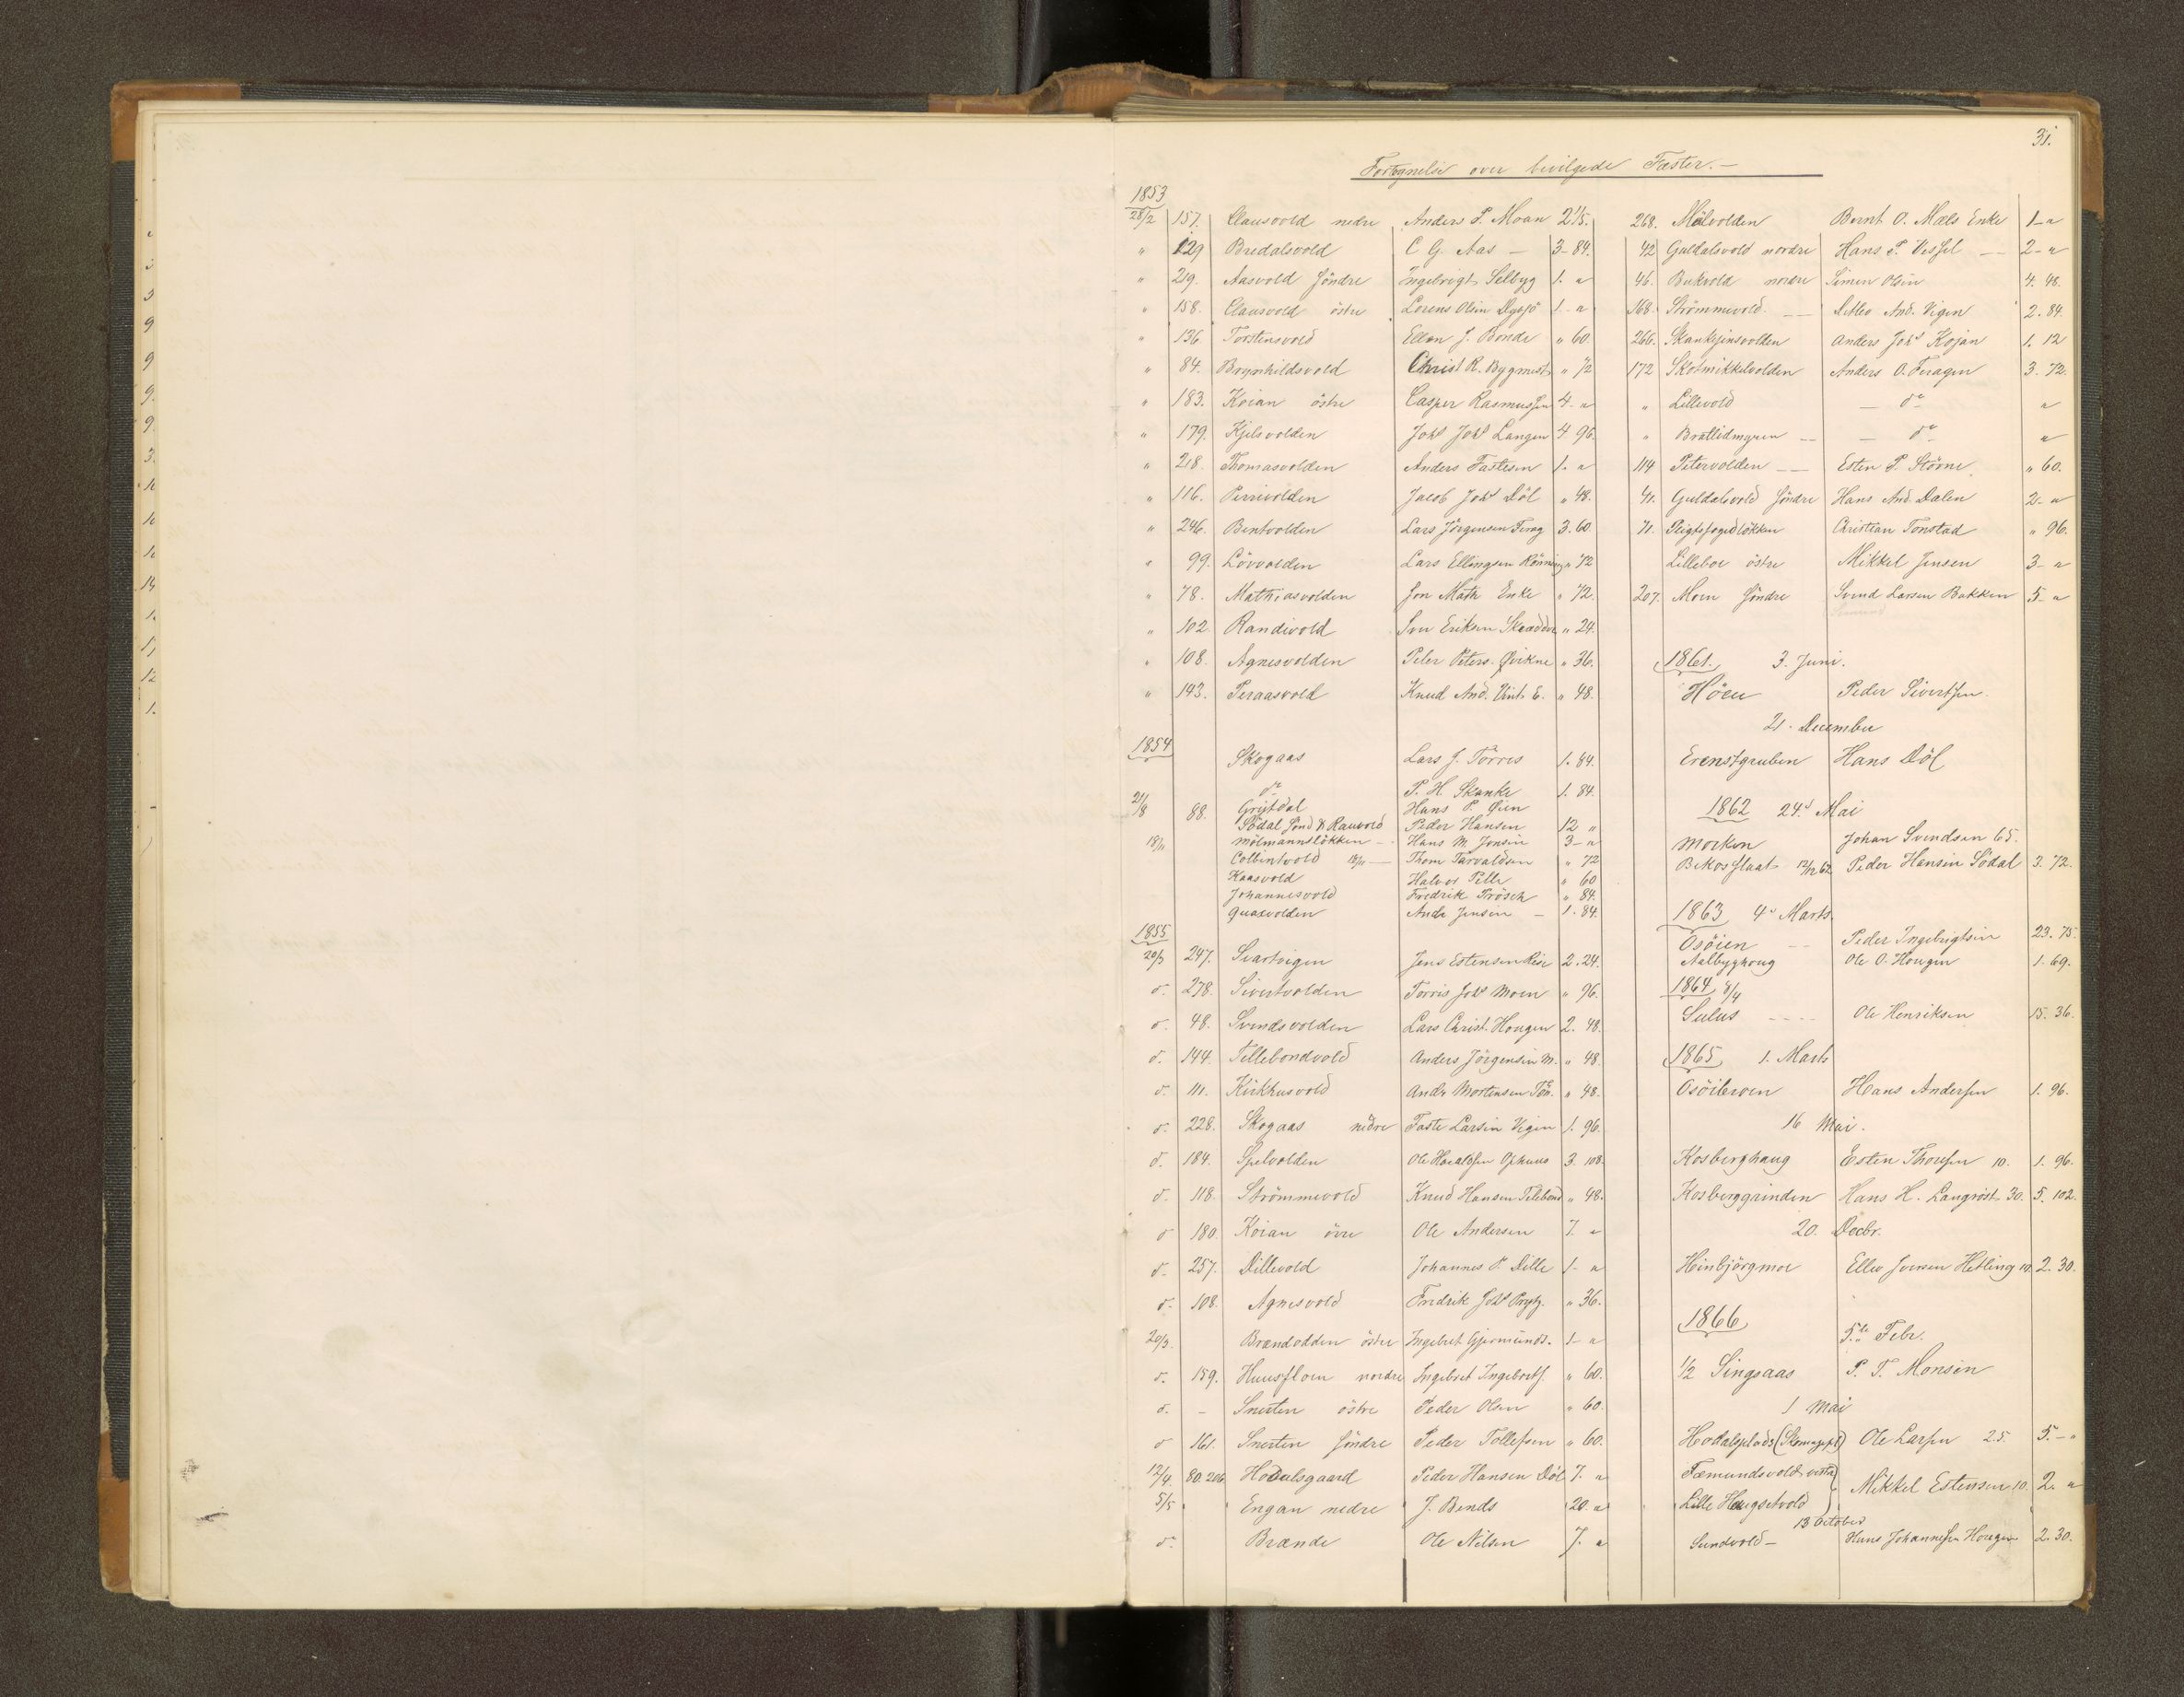 31.
Fortegnelse over bevilgede Fæster.—
1853
28/2 157. Clausvold nedre Anders P. Moan 2 1/5.
" 129 Bredalsvold C G. Aas — 3-84.
" 219. Aasvold söndre Ingebrigt Selbyg 1. "
" 158. Clausvold östre Lorens Olsen 1. "
" 136 Torstensvold Ellen J. Bonde " 60.
" 84. Brynhildsvold Christ R. Bygmest. " 72
" 183. Koian östre Casper Rasmussen 4- "
" 179. Kjelsvolden Johs Johs Langen 4 96.
" 218. Thomasvolden Anders Fastesen 1. "
" 116. Perrivolden Jacob Johs Döl " 48.
" 246. Bentvolden Lars Jörgensen Ferag 3. 60
" 99. Lövvolden Lars Ellingsen Rönning " 72
" 78. Mathiasvolden Jon Math Enke " 72.
" 102. Randivold Iver Eriksen Skrædder " 24.
" 108. Agnesvolden Peter Peters. Qvikne " 36.
" 143. Peraasvold Knud And. E. " 48.
1854
Skogaas Lars J. Törres 1. 84.
do P. H Skanke 1. 84.
21/8 88. Gristdal Hans P. Öien
Södal Sönd & Rauvold Peder Hansen 12 "
18/11 Mölmannslökken - Hans M. Jensen 3- "
Colbintvold 18/11 — Thom Tarvaldsen " 72
Kaasvold Halvor Pille " 60
Johannesvold Fredrik Prösch " 84.
Quaxvolden Andr Jensen — 1. 84.
1855
20/3 247. Svartvigen Jens Estensen Rise 2. 24.
d. 278. Sivertvolden Torris Johs Moen " 96.
d. 48. Svendsvolden Lars Christ. Hougen 2. 48.
d. 144. Tillebondvold Anders Jörgensen M. " 48
d. 111. Kirkhusvold Andr Mortensen Tön. " 48.
d. 228. Skogaas nedre Faste Larsen Vigen 1. 96.
d. 184. Spelvolden Ole Haraldsen Ophuus 3. 108.
d. 118. Strömmevold Knud Hansen Tillebond " 48.
d 180. Koian övre Ole Andersen 7. "
d. 257. Dillevold Johannes P. Dille 1- "
d. 108. Agnesvold Fredrik Johs Prytz. " 36.
20/3. Brændodden östre Ingebret Gjermunds. 1- "
d. 159. Huusfloen nordre Ingebret Ingebrets. " 60.
d. - Snerten östre Peder Olsen " 60.
d 161. Snerten söndre Peder Tollefsen " 60.
12/4. 80. 206 Hodalsgaard Peder Hansen Döl 7. "
5/5 Engan nedre J. Bends 20. "
d. Brænde Ole Nilsen 7. "
268. Mölvolden Bernt O. Mæls Enke 1- "
42 Guldalsvold nordre Hans P. Vessel — 2- "
46. Bukvold nordre Simen Olsen 4. 48.
168. Strömmevold — Ditlev And. Vigen 2. 84.
266. Skankjensvolden Anders Johs Kojan 1. 12
172 Skotmikkelvolden Anders O. Feragen 3. 72.
" Lillevold — do "
" Bratlidmyren — do "
114 Petervolden — Esten P. Störne " 60.
41. Guldalsvold söndre Hans And. Dalen 2- "
71. Pligtsfogedlökken Christian Tonstad " 96.
Lilleboe östre Mikkel Jensen 3- "
207. Moen söndre Svend Larsen Bakken 5- "
1861. 3. Juni.
Höen Peder Sivertsen
21. December
Erenstgruben Hans Döl
1862 24de Mai
Morken Johan Svendsen 65.
Bekosslaat 12/12 62 Peder Hansen Södal 3. 72.
1863 4de Marts.
Osöien — Peder Ingebrigtsen 23. 75.
Aalbyghoug Ole O. Hougen 1. 69.
1864 8/4
Sulus - - - - Ole Henriksen 15. 36.
1865 1. Marts
Osöileven Hans Andersen 1. 96.
16 Mai.
Kosberghaug Esten Thoresen 10. 1. 96.
Kosberggrinden Hans H. Langröst 30. 5. 102.
20. Decbr.
Hinbjörgmoe Ellev Iversen Hetling 10. 2. 30.
1866
5te Febr.
1/2 Singsaas P. T. Monsen
1 Mai
Hodalsplads Ole Larsen 25. 5.- "
Fæmundsvold vestre
Lille Haugsetvold Mikkel Estensen 10. 2. "
13 October
Sundvold - Hans Johannesen Hougen 2. 30.